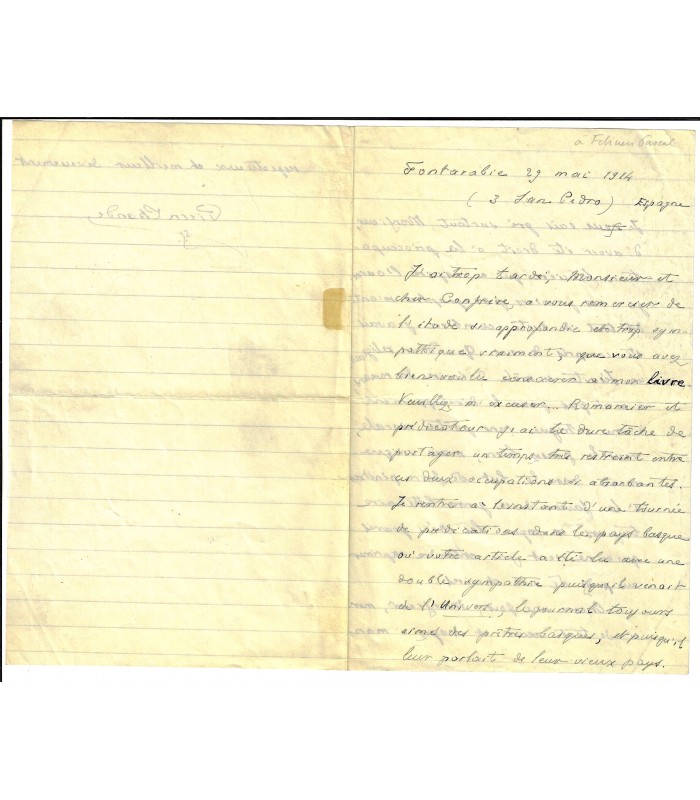 respectueux et meilleur dévouement
Pierre Lhande
sj
à Félicien Pascal
Fontarabie 29 mai 1914
(3 San Pedro) Espagne
J'ai trop tardé, Monsieur et
cher Confrère, à vous remercier de
l'étude si approfondie et trop sym
pathique vraiment, que vous avez
bien voulu consacrer à mon livre.
Veuillez m'excuser... Romancier et
prédicateur j'ai la dure tâche de
partager un temps très restreint entre
ces deux occupations si absorbantes.
Je rentre à l'instant d'une tournée
de prédications dans le pays basque
où votre article a été lu avec une
double sympathie puisqu'il venait
de l'Univers, le journal toujours
aimé des prêtres basques, et puisqu'il
leur parlait de leur vieux pays.